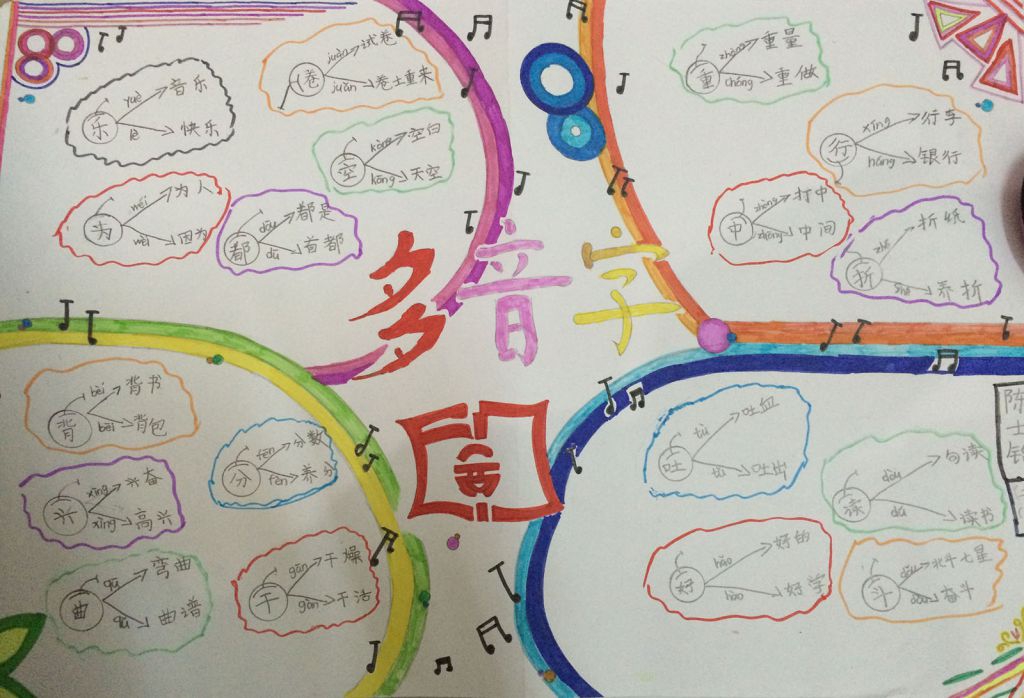 多音字
乐
yuè
音乐
lè
快乐
卷
juàn
试卷
juǎn
卷土重来
空
kòng
空白
kōng
天空
为
wéi
为人
wèi
因为
都
dōu
都是
dū
首都
重
zhòng
重量
chóng
重做
行
xíng
行李
háng
银行
中
zhòng
打中
zhōng
中间
折
zhé
折纸
shé
弄折
背
bēi
背书
bēi
背包
分
fēn
分数
fèn
养分
兴
xīng
兴奋
xìng
高兴
曲
qū
弯曲
qǔ
曲谱
干
gān
干燥
gān
干洁
吐
tù
吐血
吐出
读
dòu
句读
dú
读书
好
hǎo
好的
hào
好学
斗
dǒu
北斗七星
奋斗
陈
士